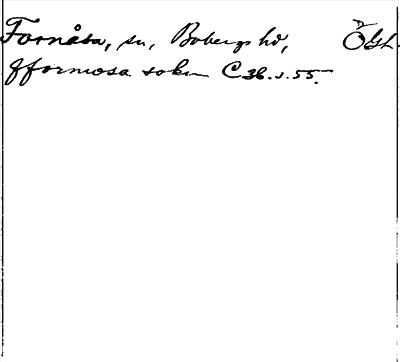 Fornåsa, sn, Bobergs hd, Ögl.
fformosa sokn C 36. s. 55.